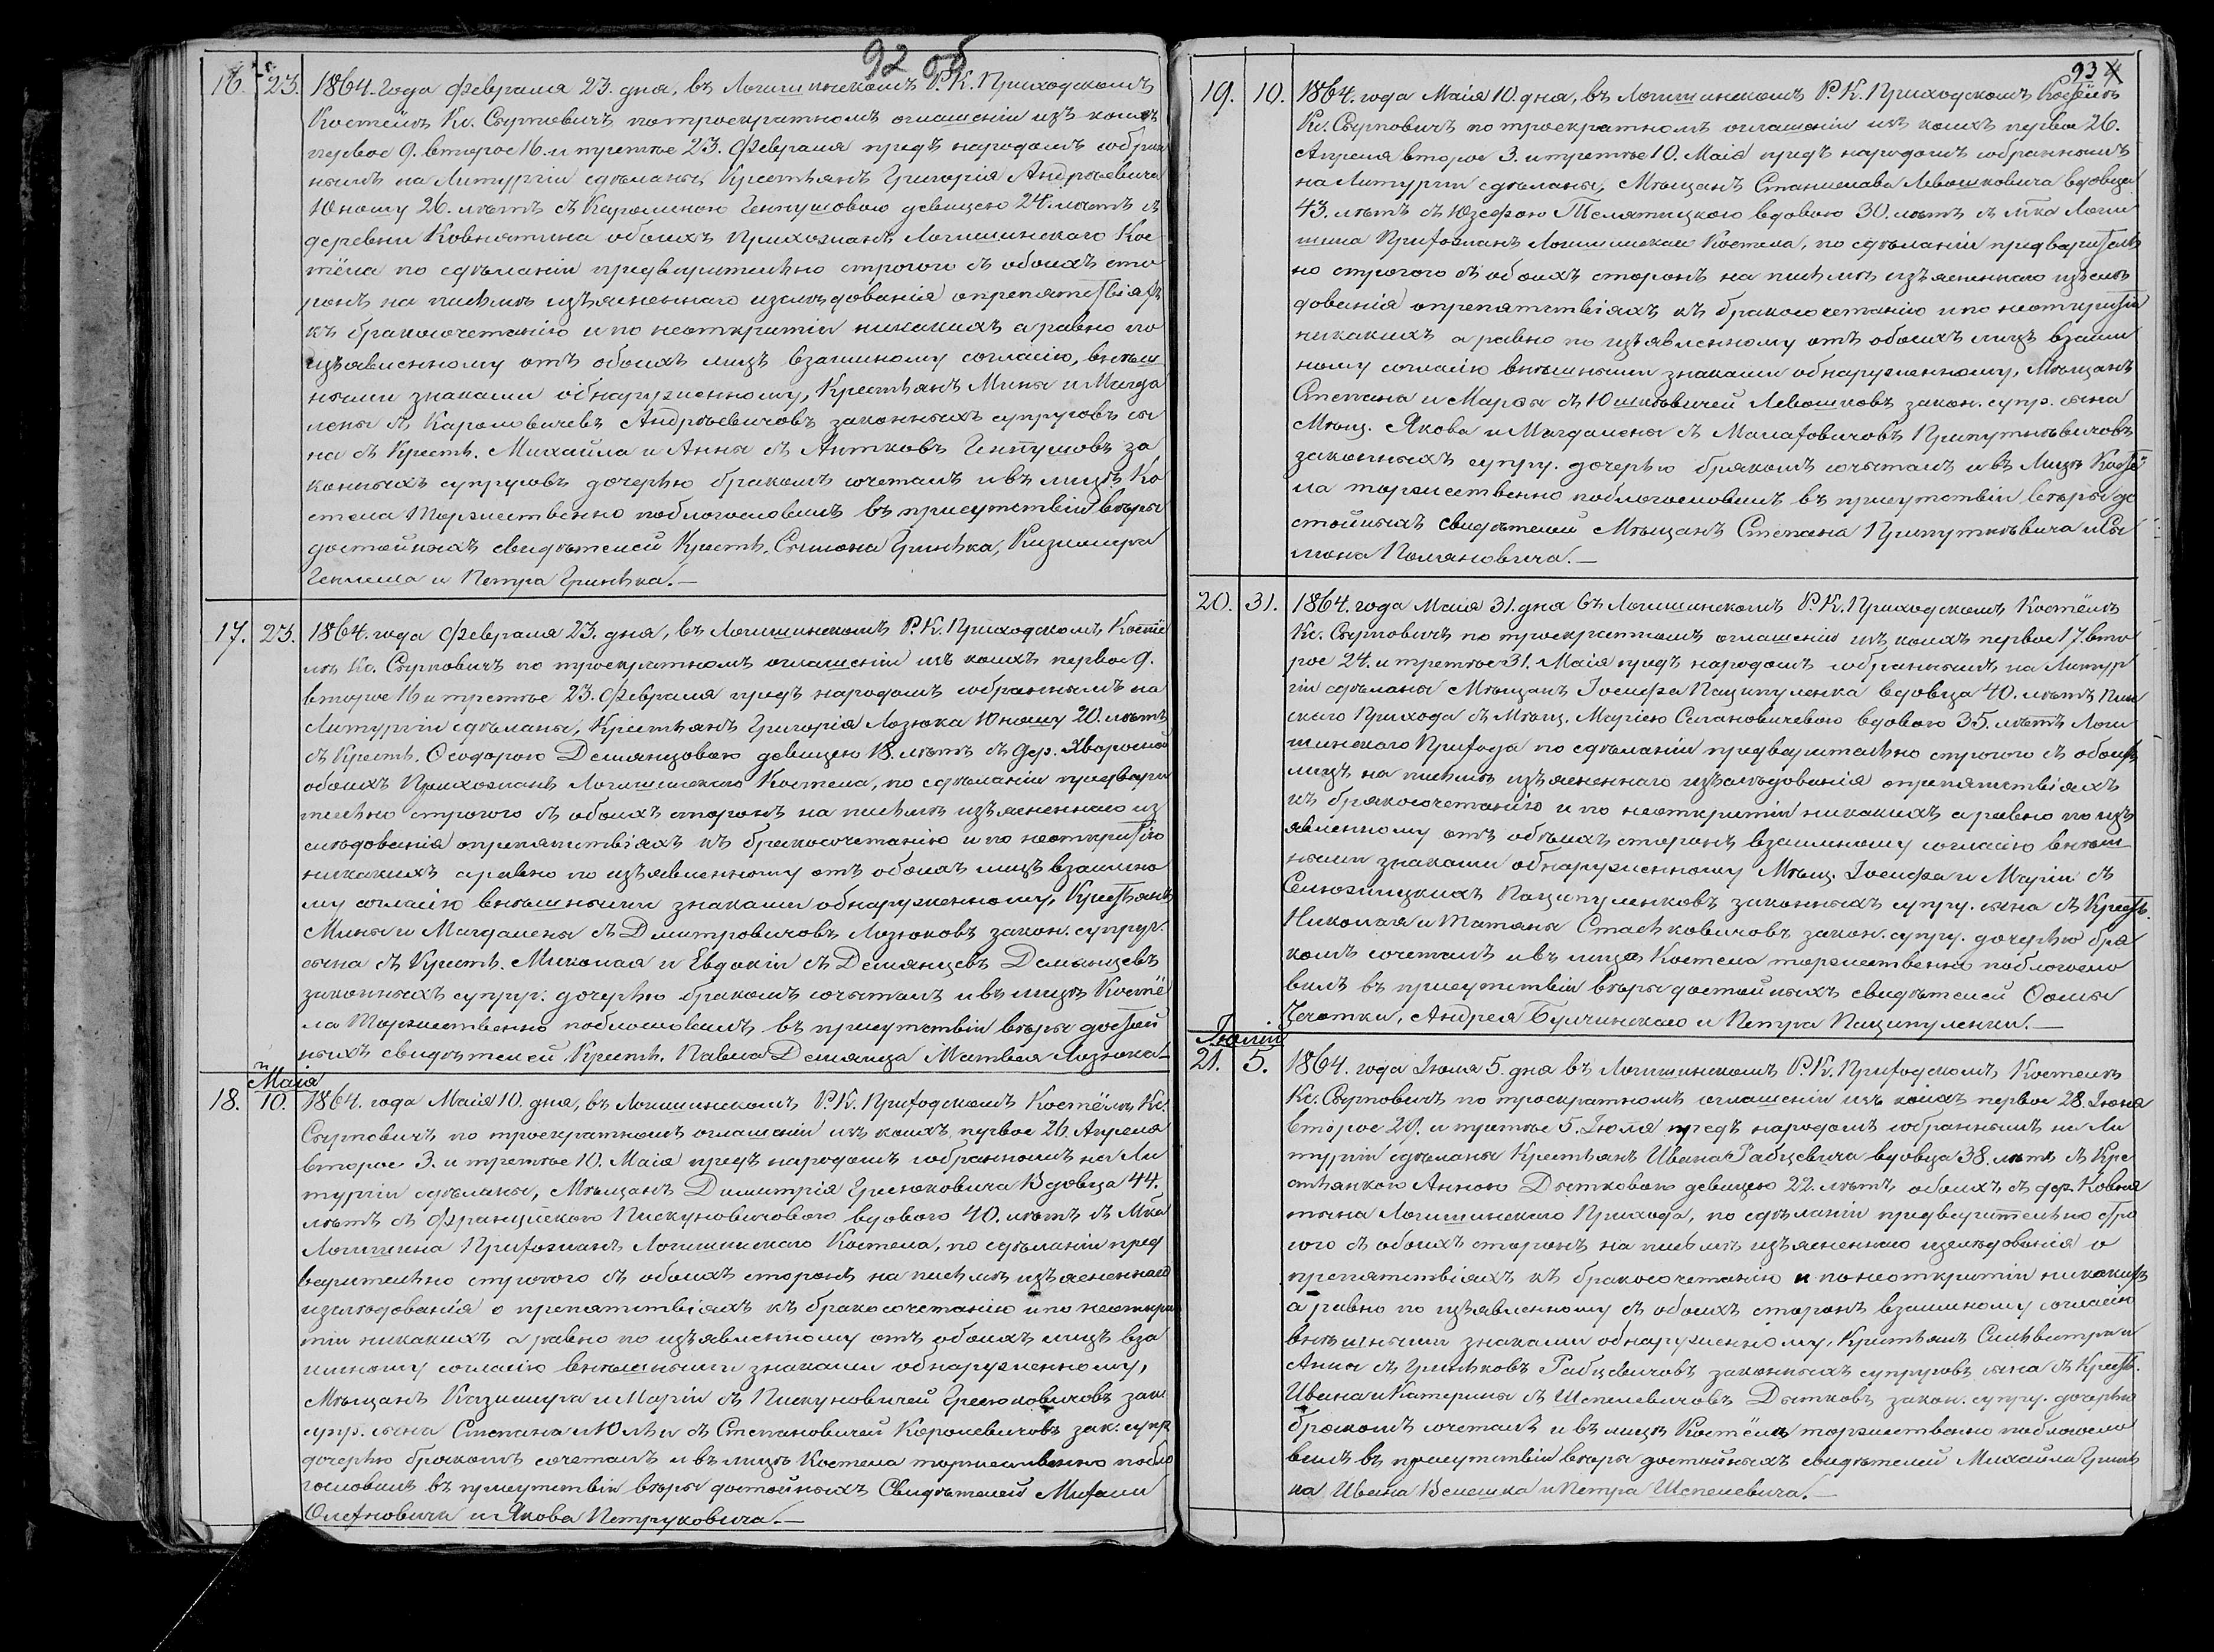 92 об
16. 23. 1864. года Февраля 23. дня, въ Логишинскомъ Р. К. Приходскомъ
Костёлѣ Кс. Сырповичъ по троекратномъ оглашеніи изъ коихъ
первое 9. второе 16. и третье 23. Февраля предъ народомъ собран
нымъ на Литургіи сдѣланы, Крестьянъ Григорія Андрѣевича
Юношу 26. лѣтъ съ Каролиною девицею 24. лѣтъ съ
деревни Ковнятина обоихъ Прихожанъ Логишинскаго Кос
тёла по сдѣланіи предварительно строгого съ обоихъ сто
ронъ на письмѣ изъясненнаго изслѣдованія опрепятствіяхъ
къ бракосочетанію и по неоткритіи никакихъ а равно по
изъявленному отъ обоихъ лицъ взаимному согласію, внѣш
ными знаками обнаруженному, Крестьянъ Мины и Магда
лены съ Кароловичевъ Андрѣевичовъ законныхъ супруговъ сы
на съ Кресть. Михайла и Анны съ Антковъ за
конныхъ супруговъ дочерью бракомъ сочеталъ и въ лицѣ Ко
стела Торжественно поблогословилъ въ присутствіи вѣры
достойныхъ свидѣтелей Кресть. Сымона Гринька, Казимира
и Петра Гринька.—
17. 23. 1864. года Февраля 23. дня, въ Логишинскомъ Р. К. Приходскомъ Костё
лѣ Кс. Сырповичъ по троекратномъ оглашеніи изъ коихъ первое 9.
второе 16 и третье 23. Февраля предъ народомъ собраннымъ на
Литургіи сдѣланы, Крестьянъ Григорія Лозюка Юношу 20. лѣтъ
съ Кресть. Ѳеодорою Демянцовою девицею 18. лѣтъ съ дер. Хворосной
обоихъ Прихожанъ Логишинскаго Костела, по сдѣланіи предвари
тельно строгого съ обоихъ сторонъ на письмѣ изъясненнаго из
слѣдованія опрепятствіяхъ къ бракосочетанію и по неоткритію
никакихъ а равно по изъявленному отъ обоихъ лицъ взаимно
му согласію внѣшными знаками обнаруженному, Крестьянъ
Мины и Магдалены съ Дмитровичовъ Лозюковъ закон. супруг.
сына съ Кресть. Миколая и Евдокіи съ Демянцевъ Демянцевъ
законныхъ супруг. дочерью бракомъ сочыталъ и въ лицѣ Костё
ла Торжественно поблогословилъ въ присутствіи вѣры достой
ныхъ свидѣтелей Кресть. Павла Демянца Матвея Лозюка.—
Маія
18. 10. 1864. года Маія 10. дня, въ Логишинскомъ Р. К. Приходскомъ Костёлѣ Кс.
Сырповичъ по троекратномъ оглашеніи изъ коихъ первое 26. Апреля
второе 3. и третье 10. Маія предъ народомъ собранномъ на Ли
тургіи сдѣланы, Мѣщанъ Димитрія Гресюковича Вдовца 44.
лѣтъ съ Францишкою Пискуновичовою вдовою 40. лѣтъ съ Мѣка
Логишина Прихожанъ Логишинскаго Костела, по сдѣланіи пред
варительно строгого съ обоихъ сторонъ на письмѣ изъясненнаго
изслѣдованія о препятствіяхъ къ бракосочетанію и по неоткри
тіи никакихъ а равно по изъявленному отъ обоихъ лицъ вза
имному согласію внѣшными знаками обнаруженному,
Мѣщанъ Казимира и Маріи съ Пискуновичей Гресюковичовъ зак.
супр. сына Степана и Юльи съ Степановичей Каролевичовъ зак. супр.
дочерью бракомъ сочеталъ и въ лицѣ Костела торжественно побло
гословилъ въ присутствіи вѣры достойныхъ Свидѣтелей
и Якова Петруковича.—
93
19. 10. 1864. года Маія 10. дня, въ Логишинскомъ Р. К. Приходскомъ Костёлѣ
Кс. Сырповичъ по троекратномъ оглашеніи изъ коихъ первое 26.
Апреля второе 3. и третье 10. Маія предъ народомъ собраннымъ
на Литургіи сдѣланы, Мѣщанъ Станислава Левошковича вдовца
43. лѣтъ съ Юзефою Телятицкою вдовою 30. лѣтъ съ мѣка Логи
шина Прихожанъ Логишинскаго Костела, по сдѣланіи предваритель
но строгого съ обоихъ сторонъ на письмѣ изъясненнаго изслѣ
дованія опрепятствіяхъ къ бракосочетанію и по неоткритіи
никакихъ а равно по изъявленному отъ обоихъ лицъ взаим
ному согласію внѣшными знаками обнаруженному, Мѣщанъ
Степана и Марѳы съ Юшкѣвичей Левошковъ закон. супр. сына
Мѣщ. Якова и Магдалены съ Малаховичовъ Припутнѣвичовъ
законныхъ супру. дочерью бракомъ сочыталъ и въ Лицѣ Костё
ла торжественно поблогословилъ въ присутствіи вѣры до
стойныхъ свидѣтелей Мѣщанъ Степана и Сы
мона Поляновича.—
20. 31. 1864. года Маія 31. дня въ Логишинскомъ Р. К. Приходскомъ Костёлѣ
Кс. Сырповичъ по троекратномъ оглашеніи изъ коихъ первое 17. вто
рое 24. и третье 31. Маія предъ народомъ собраннымъ на Литур
гіи сдѣланы Мѣщанъ Іосифа Паципуленка вдовца 40. лѣтъ Пин
скаго Прихода съ Мѣщ. Маріею Салановичевою вдовою 35. лѣтъ Логи
шинскаго Прихода по сдѣланіи предварительно строгого съ обоихъ
лицъ на письмѣ изъясненнаго изъслѣдованія опрепятствіяхъ
къ бракосочетанію и по неоткритіи никакихъ а равно по изъ
явленному отъ обѣихъ сторонъ взаимному согласію внѣш
ными знаками обнаруженному Мѣщ. Іосифа и Маріи съ
Паципуленковъ законныхъ супру. сына съ Кресть.
Николая и Татяны Стаськовичовъ закон. супру. дочерью бра
комъ сочеталъ и въ лицѣ Костела торжественно поблогосло
вилъ въ присутствіи вѣры достойныхъ свидѣтелей Ѳомы
Чечотки, Андрея Булчинскаго и Петра Паципуленки.—
Іюлія
21. 5. 1864. года Іюля 5. дня въ Логишинскомъ Р. К. Приходскомъ Костелѣ
Кс. Сырповичъ по троекратномъ оглашеніи изъ коихъ первое 28. Іюня
второе 29. и третье 5. Іюля предъ народомъ собраннымъ на Ли
тургіи сдѣланы Крестьянъ Ивана Рабцевича вдовца 38. лѣтъ съ Кре
стьянкою Анною Дѣтковою девицею 22. лѣтъ обоихъ съ дер. Ковня
тина Логишинскаго Прихода, по сдѣланіи предварительно стро
гого съ обоихъ сторонъ на письмѣ изъясненнаго изслѣдованія о
препятствіяхъ къ бракосочетанію и по неоткритіи никакихъ
а равно по изъявленному съ обоихъ сторонъ взаимному согласію
внѣшными знаками обнаруженному, Крестьянъ Сильвестра и
Анны съ Гриньковъ Рабцевичовъ законныхъ супруговъ сына съ Кресть.
Ивана и Катерины съ Шепелевичовъ Дѣтковъ закон. супру. дочерью
бракомъ сочеталъ и въ лицѣ Костёла торжественно поблогосло
вилъ въ присутствіи вѣры достойныхъ свидѣтелей Михайла Гринь
ка Ивана Велешка и Петра Шепелевича.—